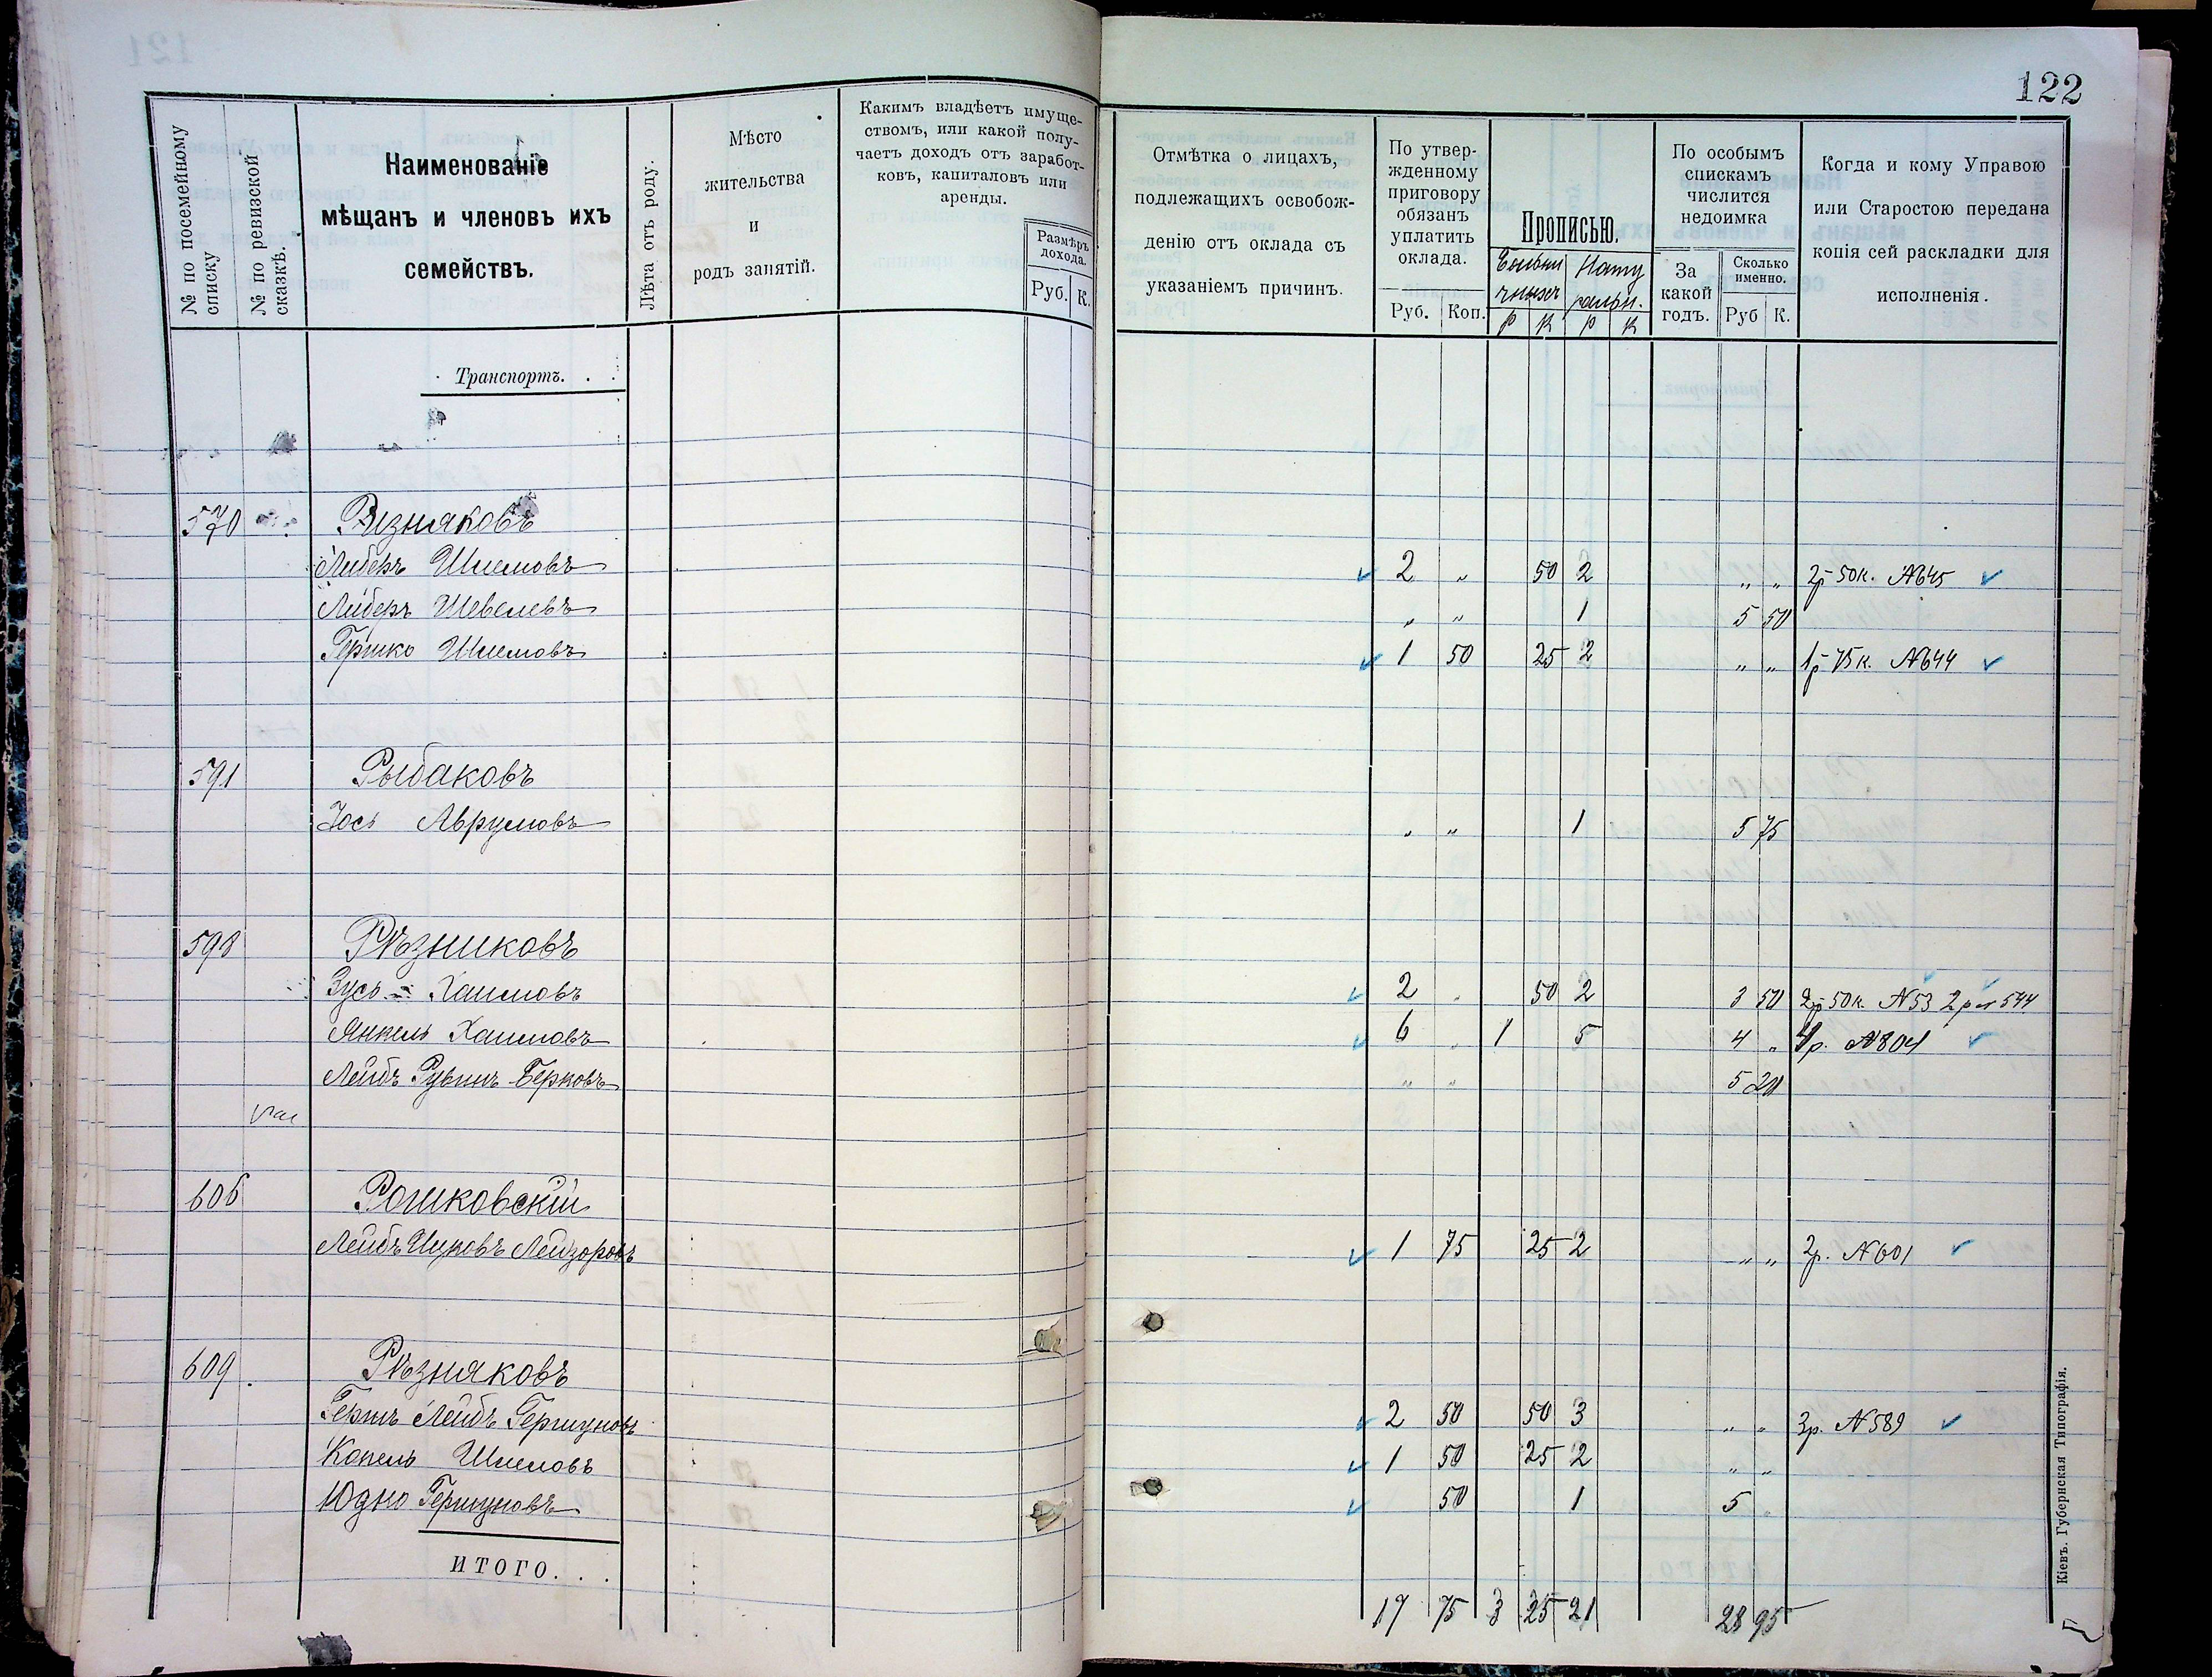 122
№ по посемейному списку
№ по ревизской сказкѣ.
Наименованіе
мѣщанъ и членовъ ихъ
семействъ.
Лѣта отъ роду.
Мѣсто
жительства
и
родъ занятій.
Какимъ владѣетъ имуще-
ствомъ, или какой полу-
чаетъ доходъ отъ заработ-
ковъ, капиталовъ или
аренды.
Размѣръ
дохода.
Руб. К.
Отмѣтка о лицахъ,
подлежащихъ освобож-
денію отъ оклада съ
указаніемъ причинъ.
По утвер-
жденному
приговору
обязанъ
уплатить
оклада.
Руб. Коп.
Прописью.
р к р к
По особымъ
спискамъ
числится
недоимка
За
какой
годъ.
Сколько
именно.
Руб К.
Когда и кому Управою
или Старостою передана
копія сей раскладки для
исполненія.
Транспортъ. . .
570 Рѣзняковъ
Либеръ Шлемовъ 2 „ 50 2 „ „ 2р 50к. №645
Либеръ Шевелевъ „ „ 1 5 50
Гершко Шлемовъ 1 50 25 2 „ „ 1р 75к. №644
591 Рыбаковъ
Іось Аврумовъ „ „ 1 5 75
598 Рѣзниковъ
Зусь Хаимовъ 2 „ 50 2 3 50 2р 50к. №53 2р 544
Янкель Хаимовъ 6 „ 1 5 4 „ р. №804
Лейбъ Рувинъ Берковъ „ „ 5 20
606 Рошковскій
Лейбъ Ицковъ Лейзоровъ 1 75 25 2 „ „ 2р. №601
609 Рѣзняковъ
Гершъ Лейбъ Гершуновъ 2 50 50 3 „ „ 3р. №589
Копель Шлемовъ 1 50 25 2 „ „
Юдко Гершуновъ 50 1 5 „
ИТОГО. . .
17 75 3 25 21 28 95
Кіевъ. Губернская Типографія.